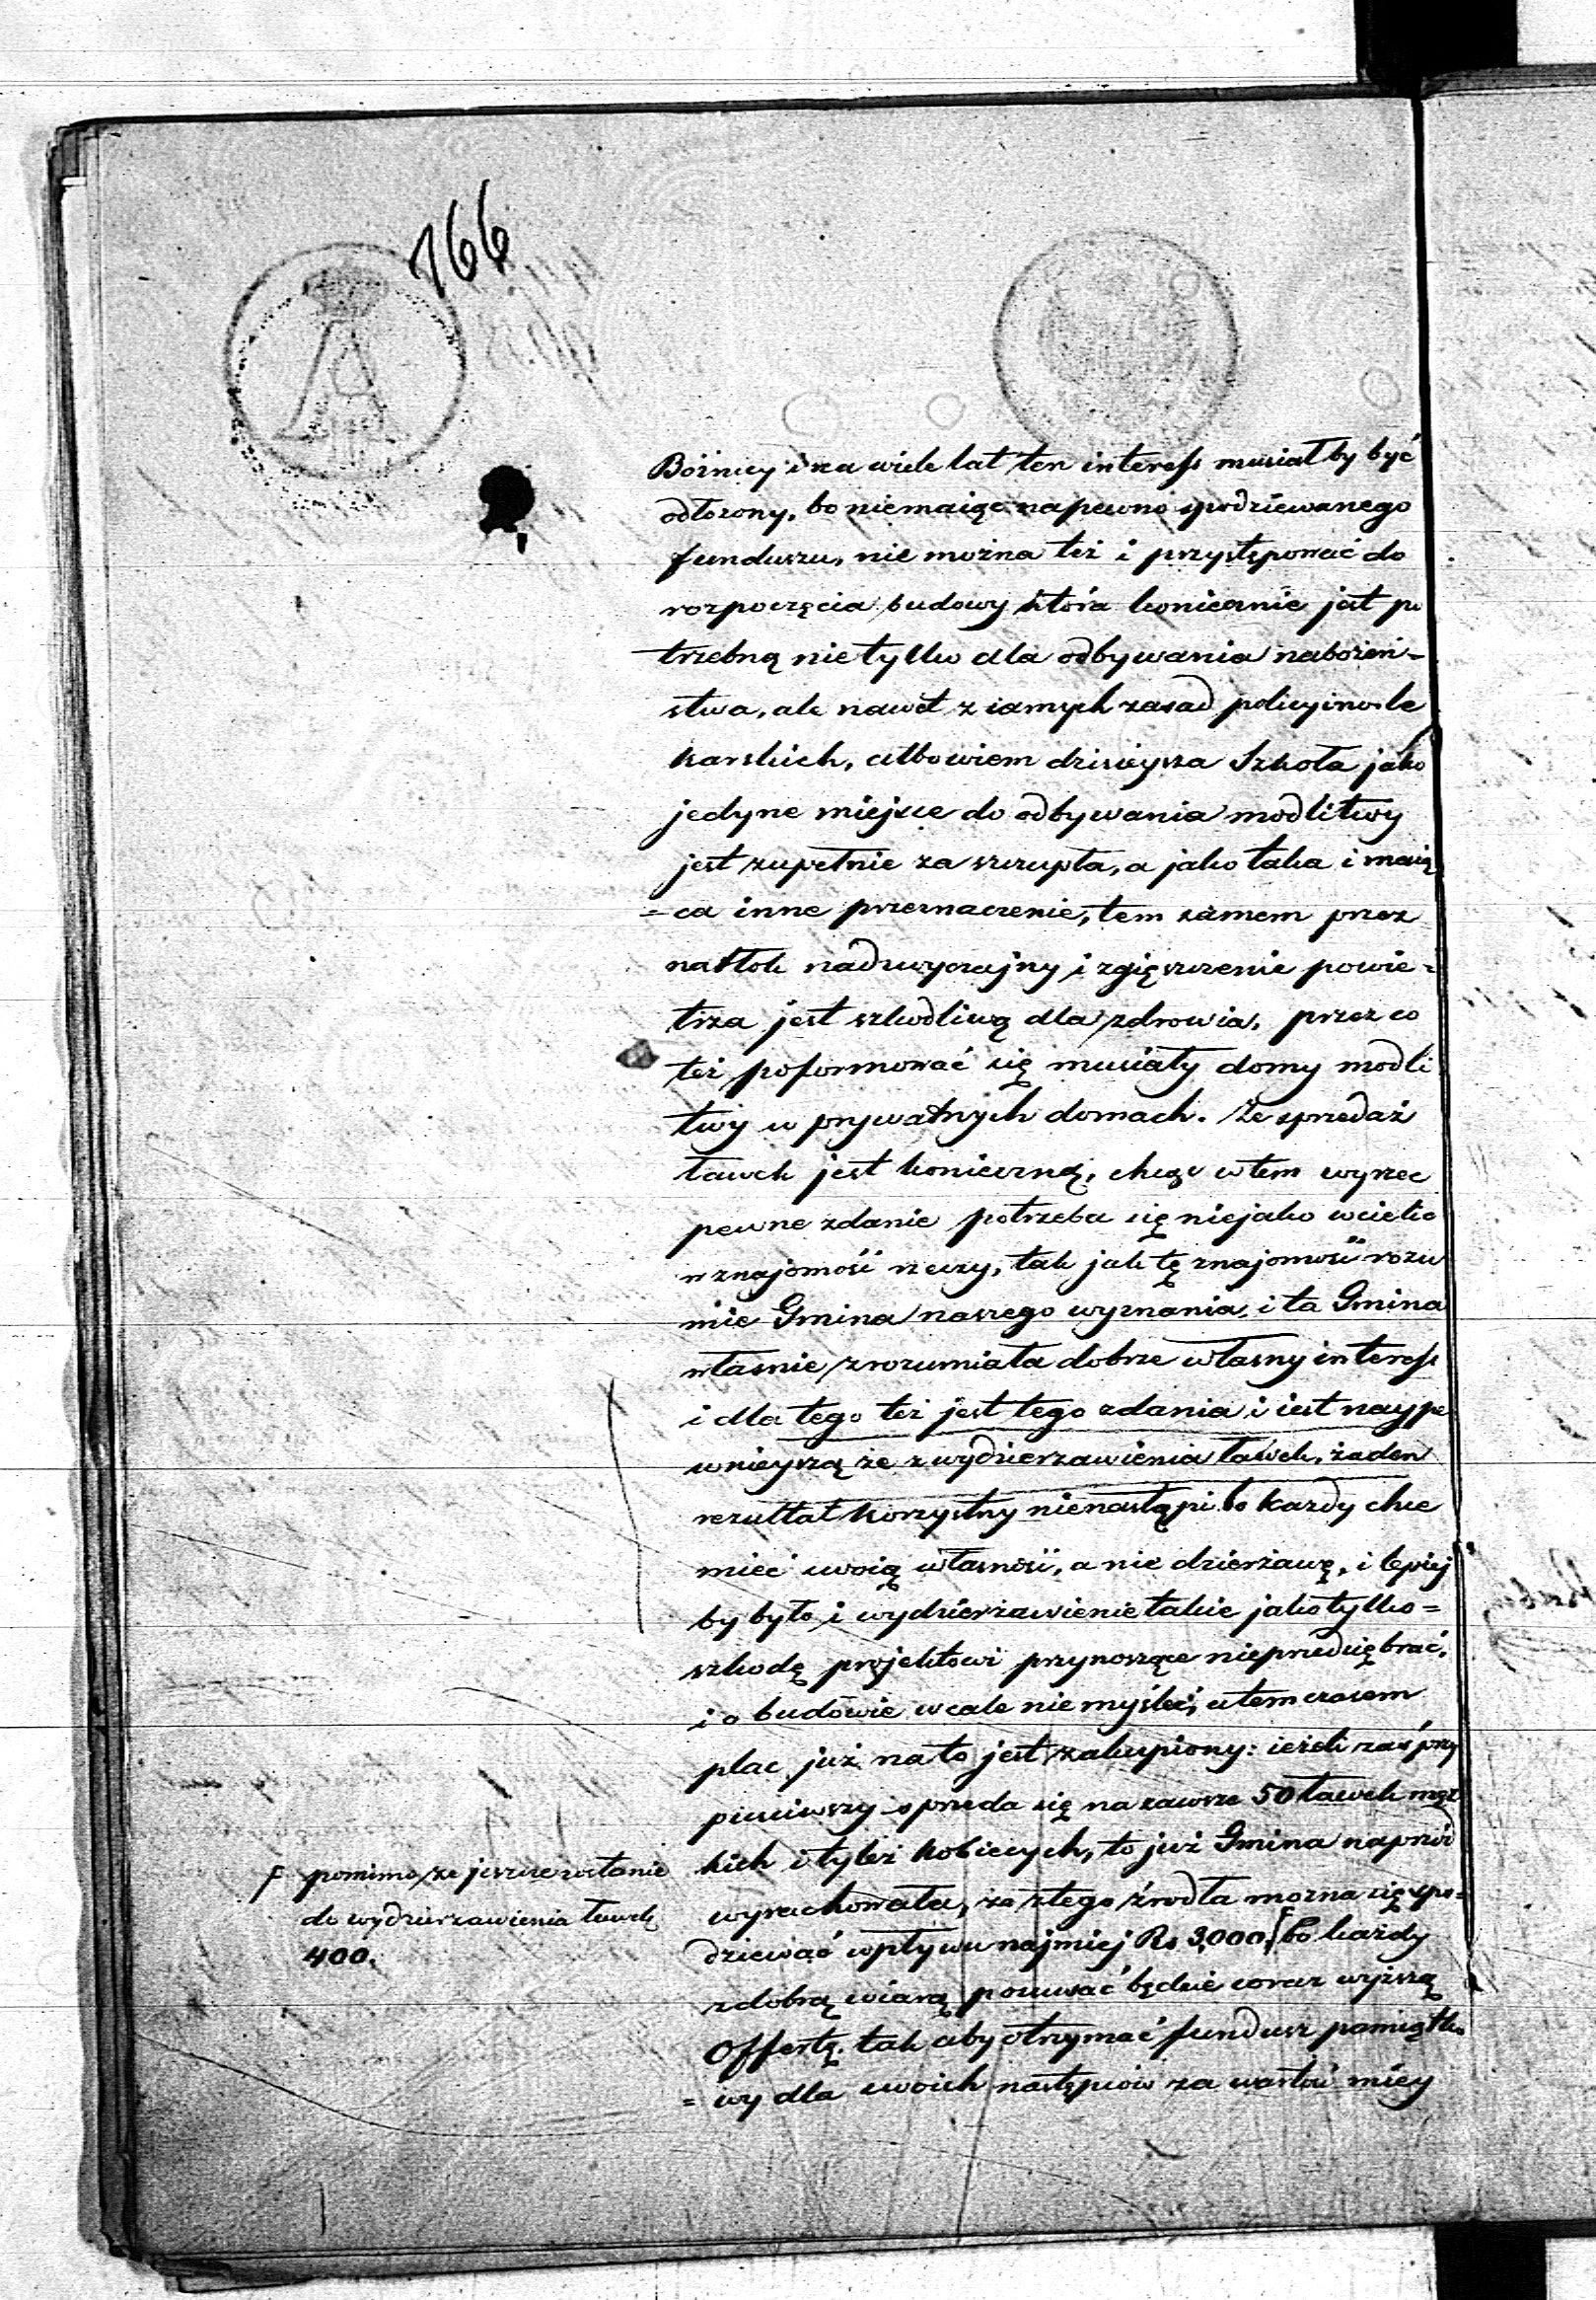 166
Bóżnicy i na wiele lat ten interess musiał by być
odłożony, bo niemaiąc napewno spodziewanego
funduszu, nie można też i przystępować do
rozpoczęcia budowy która koniecznie jest po
trzebną nietylko dla odbywania nabożeń-
stwa, ale nawet z samych zasad policyino-le
karskich, albowiem dzisieysza Szkoła jako
jedyne miejsce do odbywania modlitwy
jest zupełnie za szczupła, a jako taka i maią
=ca inne przeznaczenie, tem samem przez
natłok nadzwyczajny i zgięszczenie powie=
trza jest szkodliwą dla zdrowia, przez co
też poformować się musiały domy modli
twy w prywatnych domach. Że sprzedaż
ławek jest konieczną, chcąc w tem wyrzec
pewne zdanie potrzeba się niejako wcielic
w znajomość rzeczy, tak jak tę znajomość rozu
mie Gmina naszego wyznania, i ta Gmina
własnie zrozumiała dobrze własny interess
i dla tego też jest tego zdania i iest naype
wnieyszą że z wydzierzawienia ławek, żaden
rezultat korzystny nienastąpi bo kazdy chce
mieć swoią własność, a nie dzierżawę, i lepiej
by było i wydzierżawienie takie jako tylko=
szkodę projektowi przynoszące nieprzedsiębrać,
i o budowie wcale nie myśleć, a tem czasem
plac już na to jest zakupiony: ieżeli zaś przy
puściwszy sprzeda się na zawsze 50 ławek męz
kich i tyleż kobiecych, to już Gmina naprzód
wyrachowała, że z tego źrodła mozna się spo=
dziewać wpływu najmiej Rs 3,000, f bo każdy
z dobrą wiarą posuwać będzie coraz wyższą
Offertę, tak aby otrzymać fundusz pamiątko
=wy dla swoich następców za wartość miey
f pomimo że jeszcze zostanie
do wydzierzawienia ławek
400.